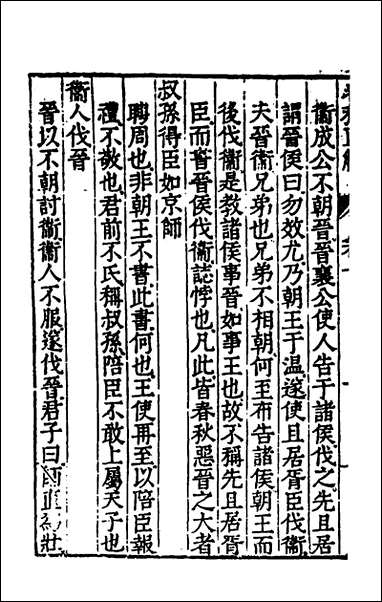 衞成公不朝晉晉襄公使人告于諸侯伐之先且居
謂晉侯曰勿效尤乃朝王于溫遂使且居胥臣伐衞
夫晉衞兄弟也兄弟不相朝何至布告諸侯朝王而
後伐衞是教諸侯事晉如事王也故不稱先且居胥
臣而書晉侯伐衞誌悖也凡此皆春秋惡晉之大者
叔孫得臣如京師
聘周也非朝王不書此書何也王使再至以陪臣報
禮不敬也君前不氏稱叔孫陪臣不敢上屬天子也
衞人伐晉
晉以不朝討衞衞人不服遂伐晉君子曰師直為壯